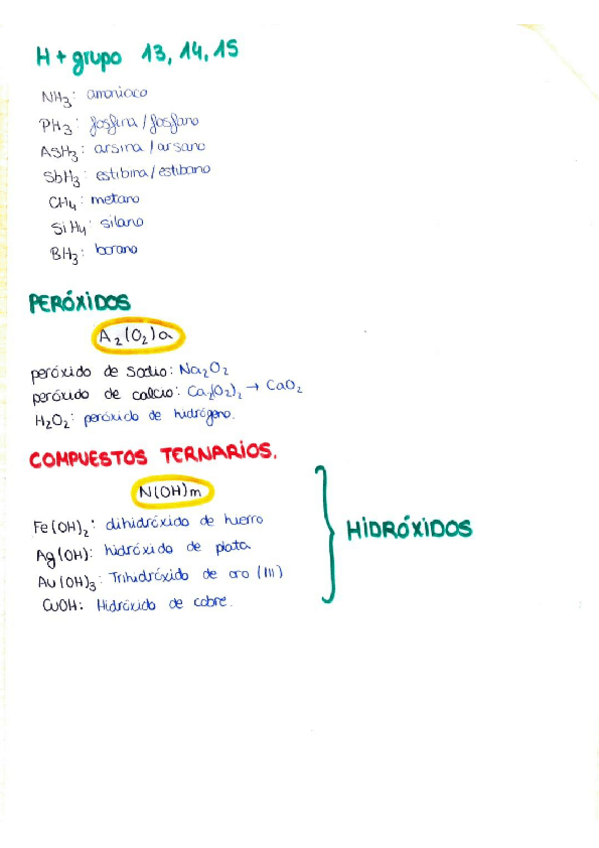 H + grupo 13, 14, 15
NH3: amoniaco
PH3: fosfina / fosfano
AsH3: arsina / arsano
SbH3: estibina / estibano
CH4: metano
SiH4: silano
BH3: borano
PERÓXIDOS
A2(O2)a
peróxido de sodio: Na2O2
peróxido de calcio: Ca2(O2)2 → CaO2
H2O2: peróxido de hidrógeno.
COMPUESTOS TERNARIOS.
N(OH)m
Fe(OH)2: dihidróxido de hierro
Ag(OH): hidróxido de plata
HIDRÓXIDOS
Au(OH)3: Trihidróxido de oro (III)
CuOH: Hidróxido de cobre.